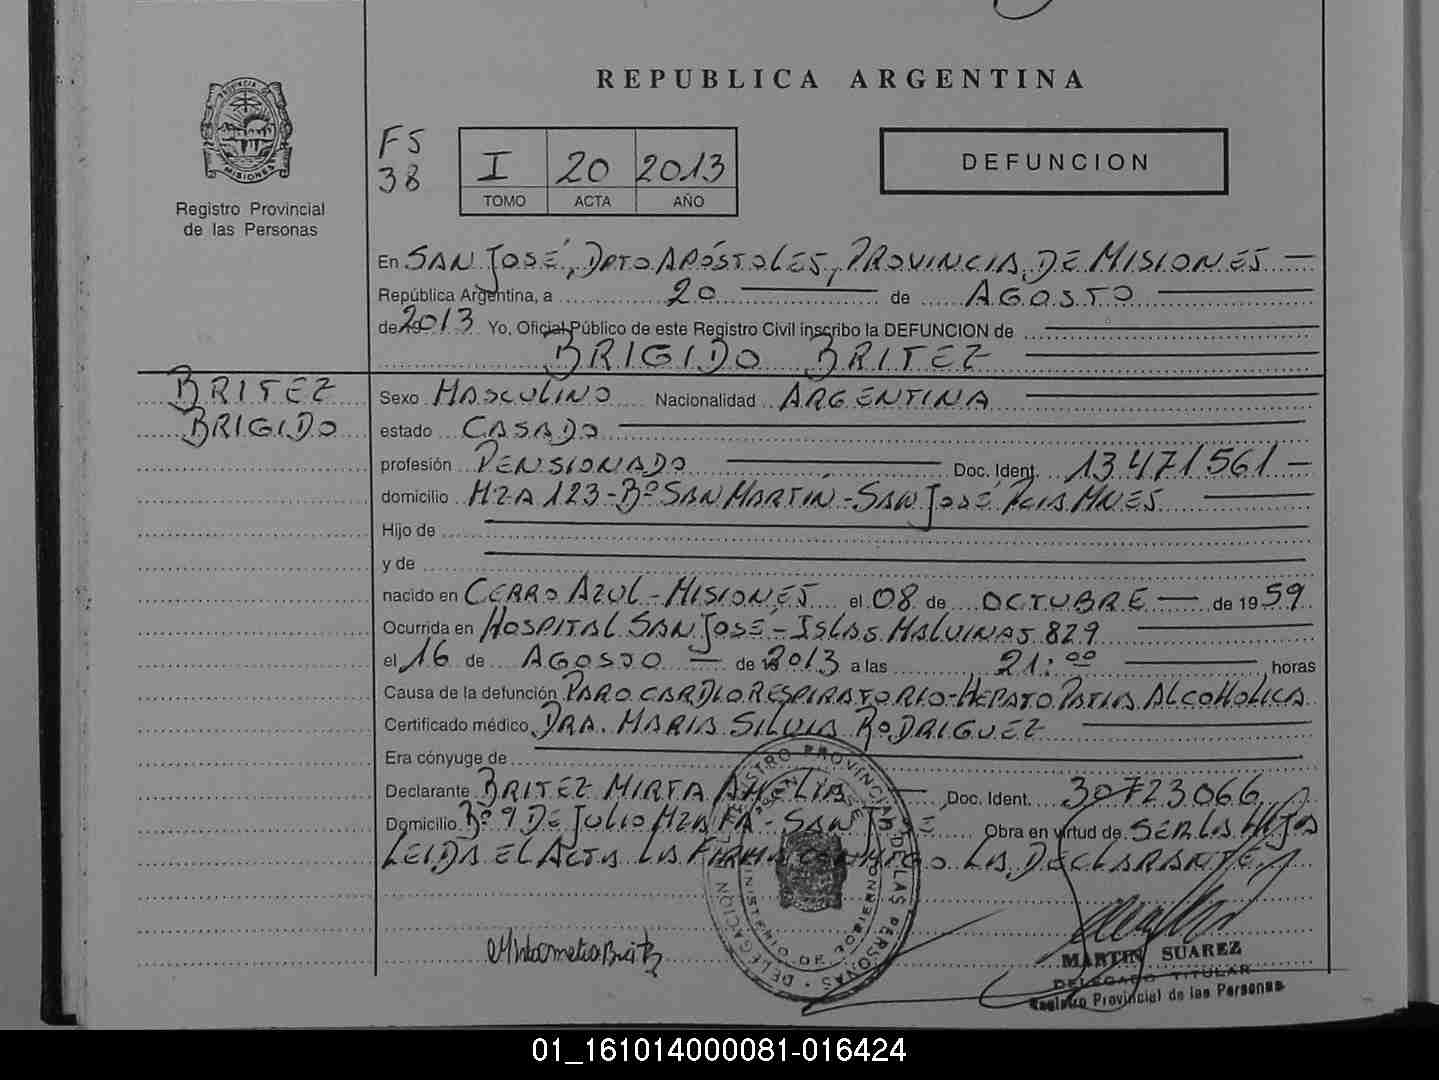 REPUBLICA ARGENTINA
PROVINCIA DE
MISIONES
Registro Provincial
de las Personas
FS
38
I 20 2013
TOMO ACTA AÑO
DEFUNCION
En SAN JOSÉ, DPTO APÓSTOLES, PROVINCIA DE MISIONES —
República Argentina, a 20 de AGOSTO
de 2013 Yo, Oficial Público de este Registro Civil inscribo la DEFUNCION de
BRIGIDO BRITEZ
BRITEZ
BRIGIDO
Sexo MASCULINO Nacionalidad ARGENTINA
estado CASADO
profesión PENSIONADO Doc. Ident. 13471561 —
domicilio MZA 123 - Bº SAN MARTÍN - SAN JOSÉ PCIA MNES
Hijo de
y de
nacido en CERRO AZUL - MISIONES el 08 de OCTUBRE — de 1959
Ocurrida en HOSPITAL SAN JOSÉ - ISLAS MALVINAS 829
el 16 de AGOSTO — de 2013 a las 21:00 horas
Causa de la defunción PARO CARDIORESPIRATORIO - HEPATOPATIA ALCOHOLICA
Certificado médico DRA. MARIA SILVIA RODRIGUEZ
Era cónyuge de
Declarante BRITEZ MIRTA AMALIA — Doc. Ident. 30723066
Domicilio Bº 9 DE JULIO MZA - SAN JOSÉ Obra en virtud de SER LA HIJA
LEIDA EL ACTA LA FIRMA CONMIGO LA DECLARANTE
REGISTRO PROVINCIAL DE LAS PERSONAS · DELEGACION
SAN JOSE
MINISTERIO DE GOBIERNO
MARTIN SUAREZ
DELEGADO TITULAR
Registro Provincial de las Personas
01_161014000081-016424